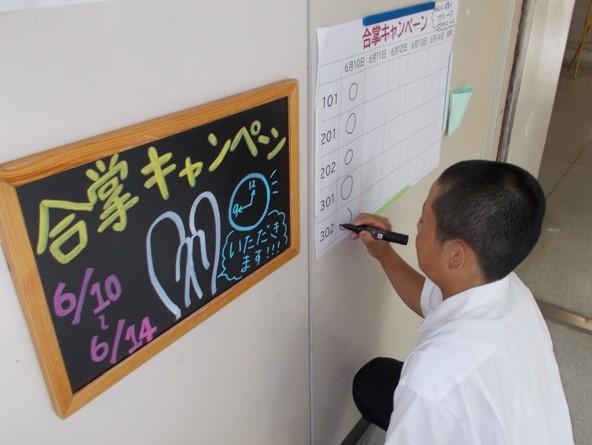 合掌キャンペーン
6/10
~
6/14
12
9
いただき
ます!!!
合掌キャンペーン
6月10日 6月11日 6月12日 6月13日 6月14日
101 ○
201 ○
202 ○
301 ○
302